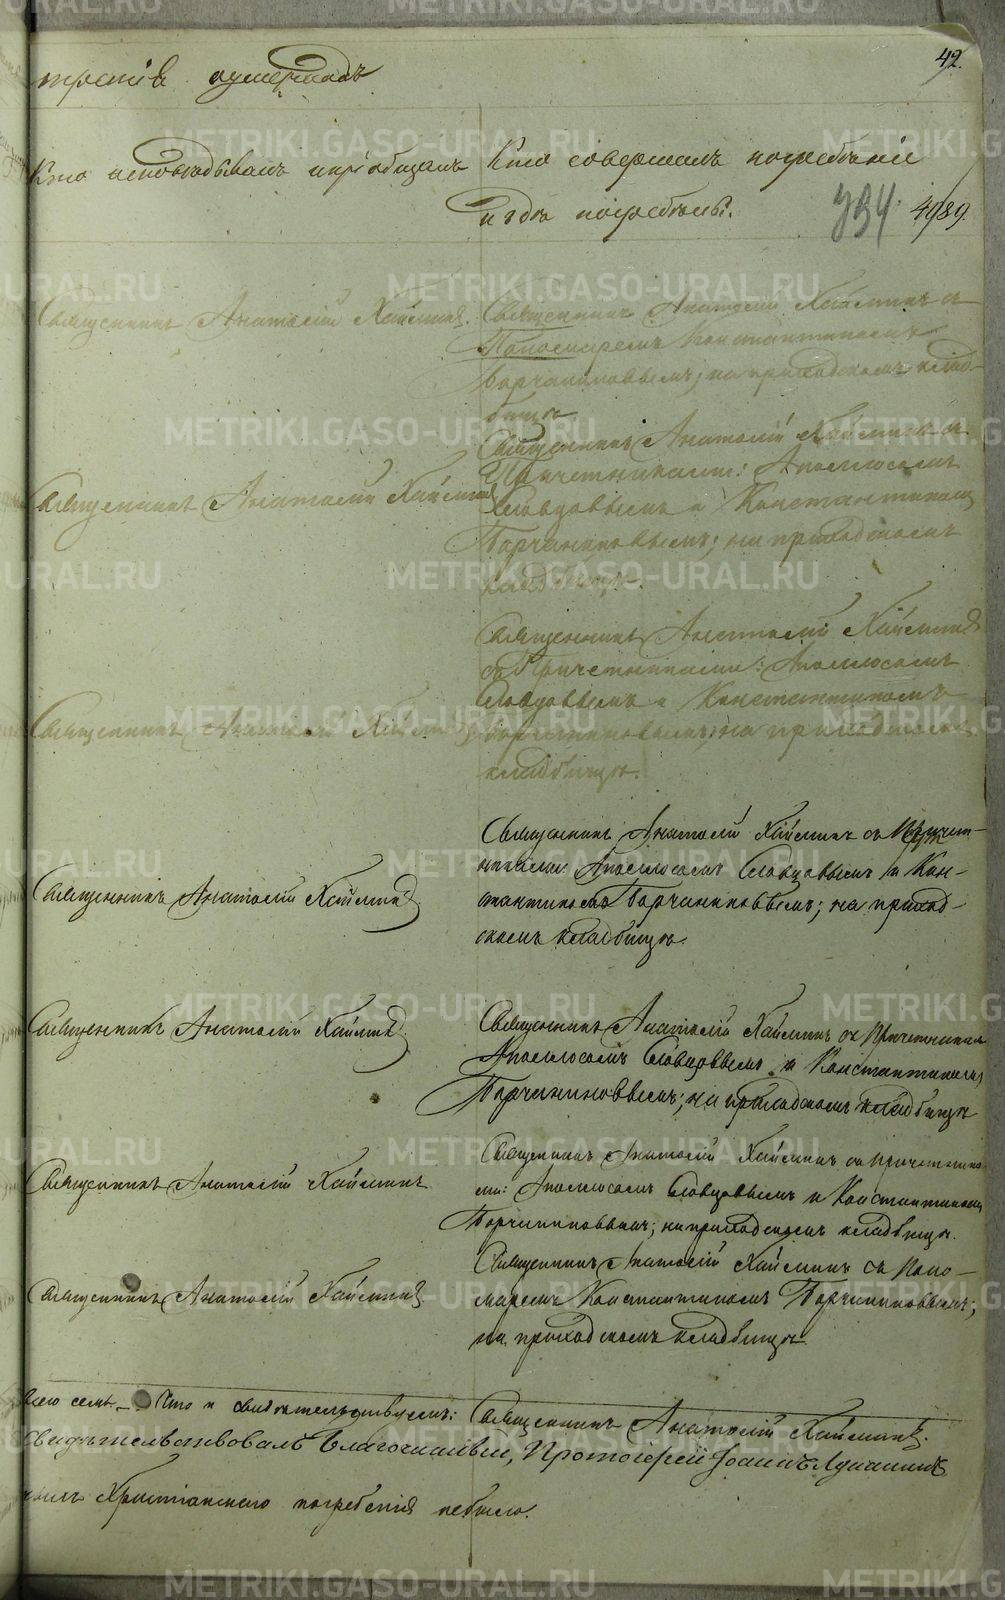 42.
третiя умершихъ
Кто исповѣдывалъ и прiобщалъ
Кто совершалъ погребенiе
и гдѣ погребены.
394. 4989.
Священникъ Анатолiй Хаймин
Священникъ Анатолiй Хайминъ съ
Пономаремъ Константиномъ
Борчаниновымъ; на приходскомъ клад-
бищѣ.
Священникъ Анатолiй Хаймин
Священникъ Анатолiй Хайминъ съ
Причетниками: Аполлосомъ
Словцовымъ и Константиномъ
Борчаниновымъ; на приходскомъ
кладбищѣ.
Священникъ Анатолiй Хаймин
Священникъ Анатолiй Хайминъ
съ Причетниками: Аполлосомъ
Словцовымъ и Константиномъ
Борчаниновымъ; на приходскомъ
кладбищѣ.
Священникъ Анатолiй Хайминъ
Священникъ Анатолiй Хайминъ съ Причет-
никами: Аполлосомъ Словцовымъ и Кон-
стантиномъ Борчаниновымъ; на приход-
скомъ кладбищѣ.
Священникъ Анатолiй Хайминъ
Священникъ Анатолiй Хайминъ съ Причетниками
Аполлосомъ Словцовымъ и Константиномъ
Борчаниновымъ; на приходскомъ кладбищѣ
Священникъ Анатолiй Хайминъ
Священникъ Анатолiй Хайминъ съ Причетника-
ми: Аполлосомъ Словцовымъ и Константиномъ
Борчаниновымъ; на приходскомъ кладбищѣ.
Священникъ Анатолiй Хайминъ
Священникъ Анатолiй Хайминъ съ Поно-
маремъ Константиномъ Борчаниновымъ;
на приходскомъ кладбищѣ.
всего семь. – Что и свидѣтельствуемъ: Священникъ Анатолiй Хайминъ.
Свидѣтельствовалъ Благочинный, Протоiерей Iоаннъ
Христiанскаго погребенiя небыло.
METRIKI.GASO-URAL.RU